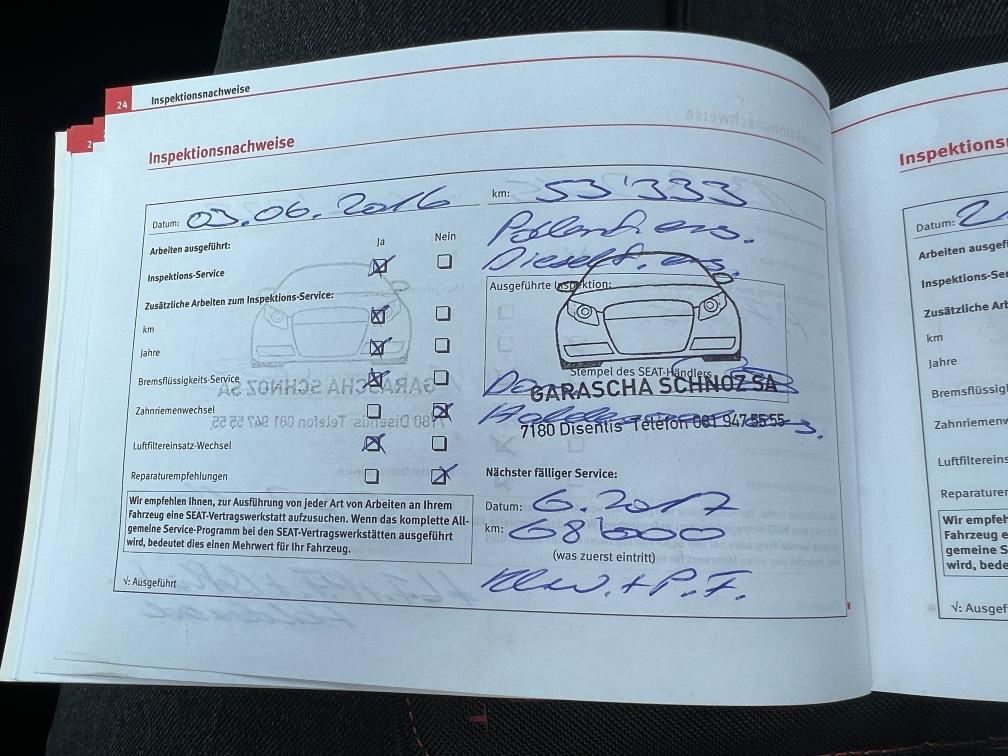 24 Inspektionsnachweise
Inspektionsnachweise
Datum: 03.06.2016 km: 53'333
Arbeiten ausgeführt: Ja Nein
Inspektions-Service
Zusätzliche Arbeiten zum Inspektions-Service:
km
Jahre
Bremsflüssigkeits-Service
Zahnriemenwechsel
Luftfiltereinsatz-Wechsel
Reparaturempfehlungen
Wir empfehlen Ihnen, zur Ausführung von jeder Art von Arbeiten an Ihrem
Fahrzeug eine SEAT-Vertragswerkstatt aufzusuchen. Wenn das komplette All-
gemeine Service-Programm bei den SEAT-Vertragswerkstätten ausgeführt
wird, bedeutet dies einen Mehrwert für Ihr Fahrzeug.
√: Ausgeführt
Pollenf. ers.
Dieself. ers.
Ausgeführte Inspektion:
Stempel des SEAT-Händlers
GARASCHA SCHNOZ SA
7180 Disentis Telefon 081 947 55 55
Nächster fälliger Service:
Datum: 6.2017
km: 68'000
(was zuerst eintritt)
+ P.F.
2
Inspektions
Datum: 2
Arbeiten ausgef
Inspektions-Ser
Zusätzliche Arb
km
Jahre
Bremsflüssig
Zahnriemenw
Luftfiltereins
Reparaturem
Wir empfeh
Fahrzeug e
gemeine S
wird, bede
√: Ausgef